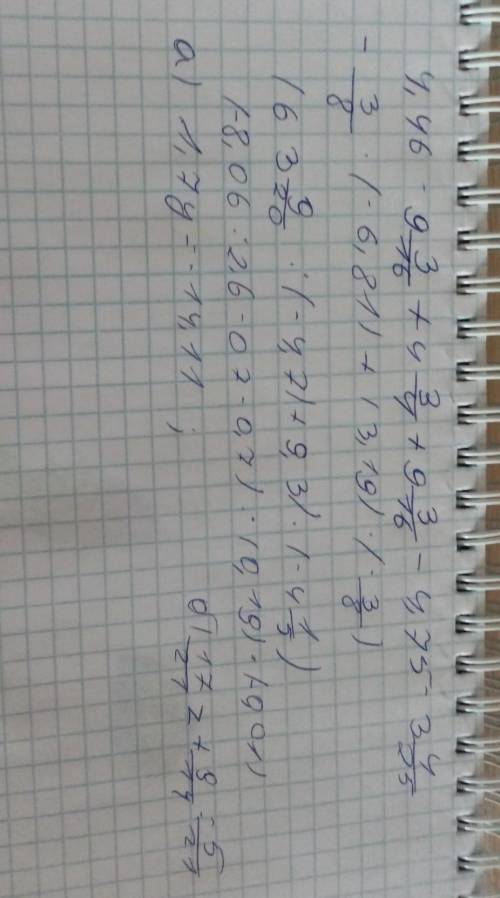 4,46 - 9 3/16 + 4 3/4 + 9 3/16 - 4,75 - 3 4/25
- 3/8 · (-6,81) + 13,19) · (-3/8)
(6 3 9/20 : (-4,7) + 9,3) · (-4 1/3)
(-8,06 : 2,6 - 0,7 - 0,7) : (0,19) · (9 01)
а) 1,7y = -14,11 ;
б) 17/21 z + 9/14 = 5/21